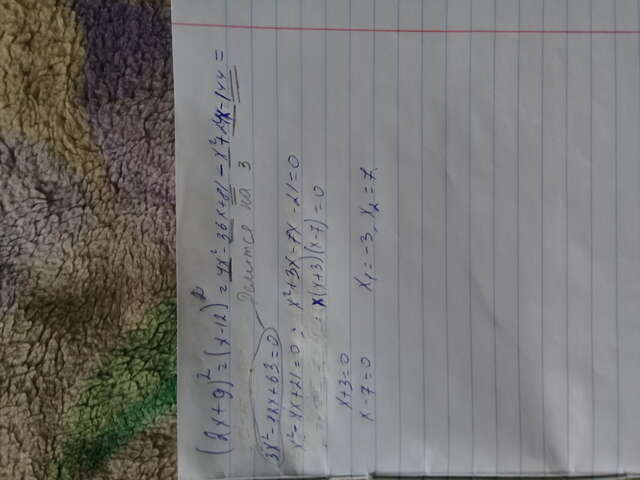 (2x+9)² = (x-12)² = 4x² - 36x + 81 - x² + 24x - 144 =
Делится на 3
3x² - 12x + 63 = 0
x² - 4x + 21 = 0; x² + 3x - 7x - 21 = 0
x(x+3)(x-7) = 0
x+3=0
x-7=0 x₁ = -3, x₂ = 7.